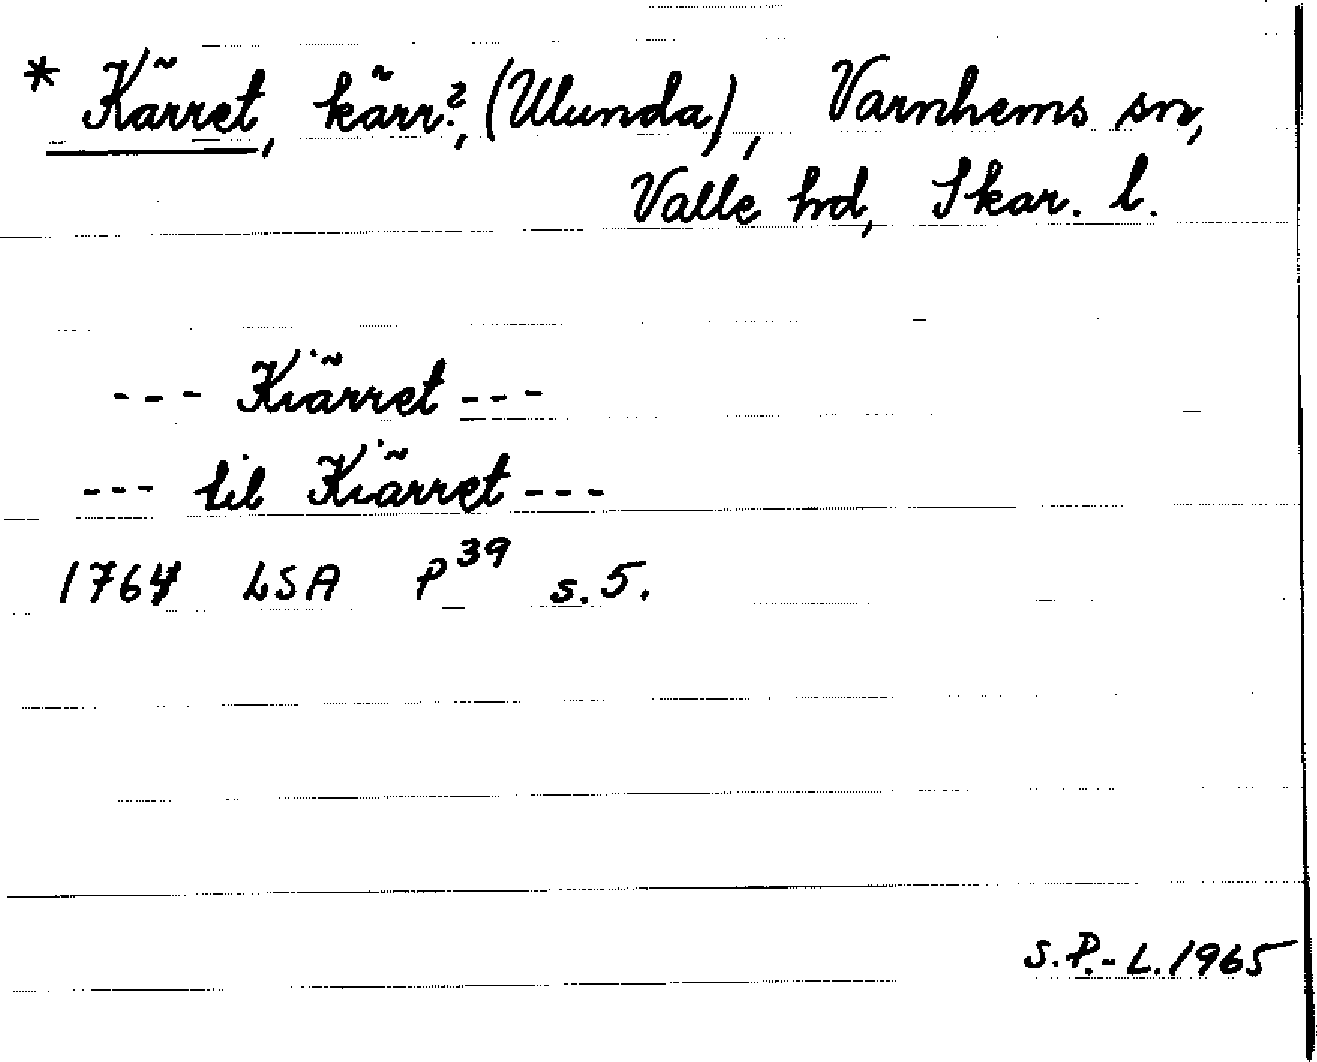 * Kärret, kärr?, (Ulunda), Varnhems sn,
Valle hd, Skar. l.
--- Kiärret ---
--- til Kiärret ---
1764 LSA P39 s.5.
S.P.-L.1965